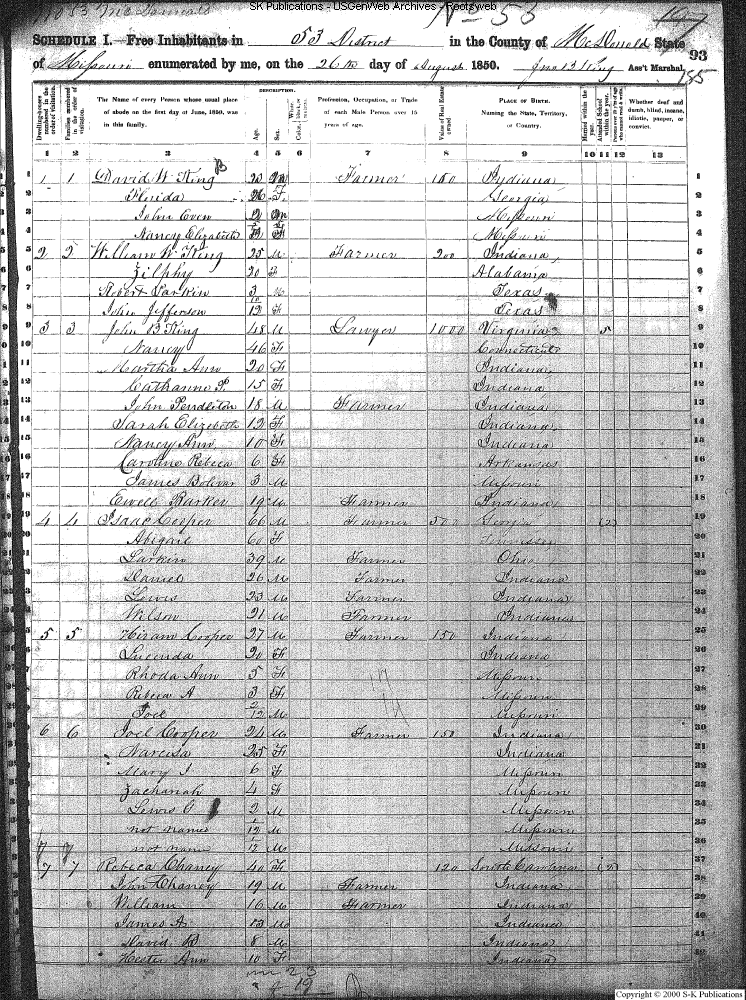 SK Publications - USGenWeb Archives - Rootsweb
No 53
SCHEDULE I.—Free Inhabitants in 53 District in the County of McDonald State 93
of Missouri enumerated by me, on the 26th day of August 1850. Jno B King Ass't Marshal. 185
Dwelling-houses numbered in the order of visitation.
Families numbered in the order of visitation.
The Name of every Person whose usual place of abode on the first day of June, 1850, was in this family.
DESCRIPTION.
Age.
Sex.
Color, White, black, or mulatto.
Profession, Occupation, or Trade of each Male Person over 15 years of age.
Value of Real Estate owned
PLACE OF BIRTH. Naming the State, Territory, or Country.
Married within the year.
Attended School within the year.
Whether deaf and dumb, blind, insane, idiotic, pauper, or convict.
1 2 3 4 5 6 7 8 9 10 11 12 13
1 1 1 David W King Farmer 100 Indiana 1
2 Florida 26 F Georgia 2
3 John Owen Missouri 3
4 Nancy Elizabeth F Missouri 4
5 2 2 William W King 25 M Farmer 200 Indiana 5
6 Zilphy 20 F Alabama 6
7 Robert Larkin 3 M Texas 7
8 John Jefferson 12 F Texas 8
9 3 3 John B King 48 M Lawyer 1000 Virginia 9
10 Nancy 46 F Connecticut 10
11 Martha Ann 20 F Indiana 11
12 Catharine P. 15 F Indiana 12
13 John Pendleton 18 M Farmer Indiana 13
14 Sarah Elizebeth 12 F Indiana 14
15 Nancy Ann 10 F Indiana 15
16 Caroline Rebeca 6 F Arkansas 16
17 James Bolivar 3 M Missouri 17
18 Ewell Barker 19 M Farmer Indiana 18
19 4 4 Isaac Cooper 66 M Farmer 500 Georgia 19
20 Abigail 60 F 20
21 Larkin 39 M Farmer Ohio 21
22 Daniel 26 M Farmer Indiana 22
23 Lewis 23 M Farmer Indiana 23
24 Wilson 21 M Farmer Indiana 24
25 5 5 Hiram Cooper 27 M Farmer 150 Indiana 25
26 Lucinda 20 F Indiana 26
27 Rhoda Ann 5 F Missouri 27
28 Rebeca A 3 F Missouri 28
29 Joel M Missouri 29
30 6 6 Joel Cooper 24 M Farmer 150 Indiana 30
31 Narcisa 25 F Indiana 31
32 Mary J 6 F Missouri 32
33 Zachariah 4 F Missouri 33
34 Lewis G 2 M Missouri 34
35 not named M Missouri 35
36 not name M Missouri 36
37 7 7 Rebeca Chaney 40 F 120 South Carolina 37
38 John Chaney 19 M Farmer Indiana 38
39 William 16 M Farmer Indiana 39
40 James A 13 M Indiana 40
41 David B 8 M Indiana 41
42 Hester Ann 10 F Indiana 42
m 23
f 19
Copyright © 2000 S-K Publications